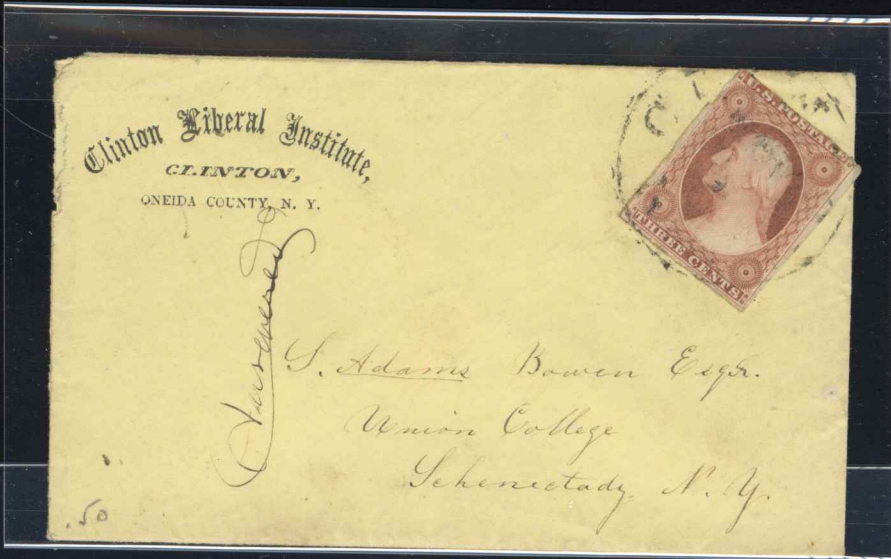 Clinton Liberal Institute,
CLINTON,
ONEIDA COUNTY, N. Y.
U.S. POSTAGE
THREE CENTS
Answered
S. Adams Bowen Esqr.
Union College
Schenectady N. Y.
.50